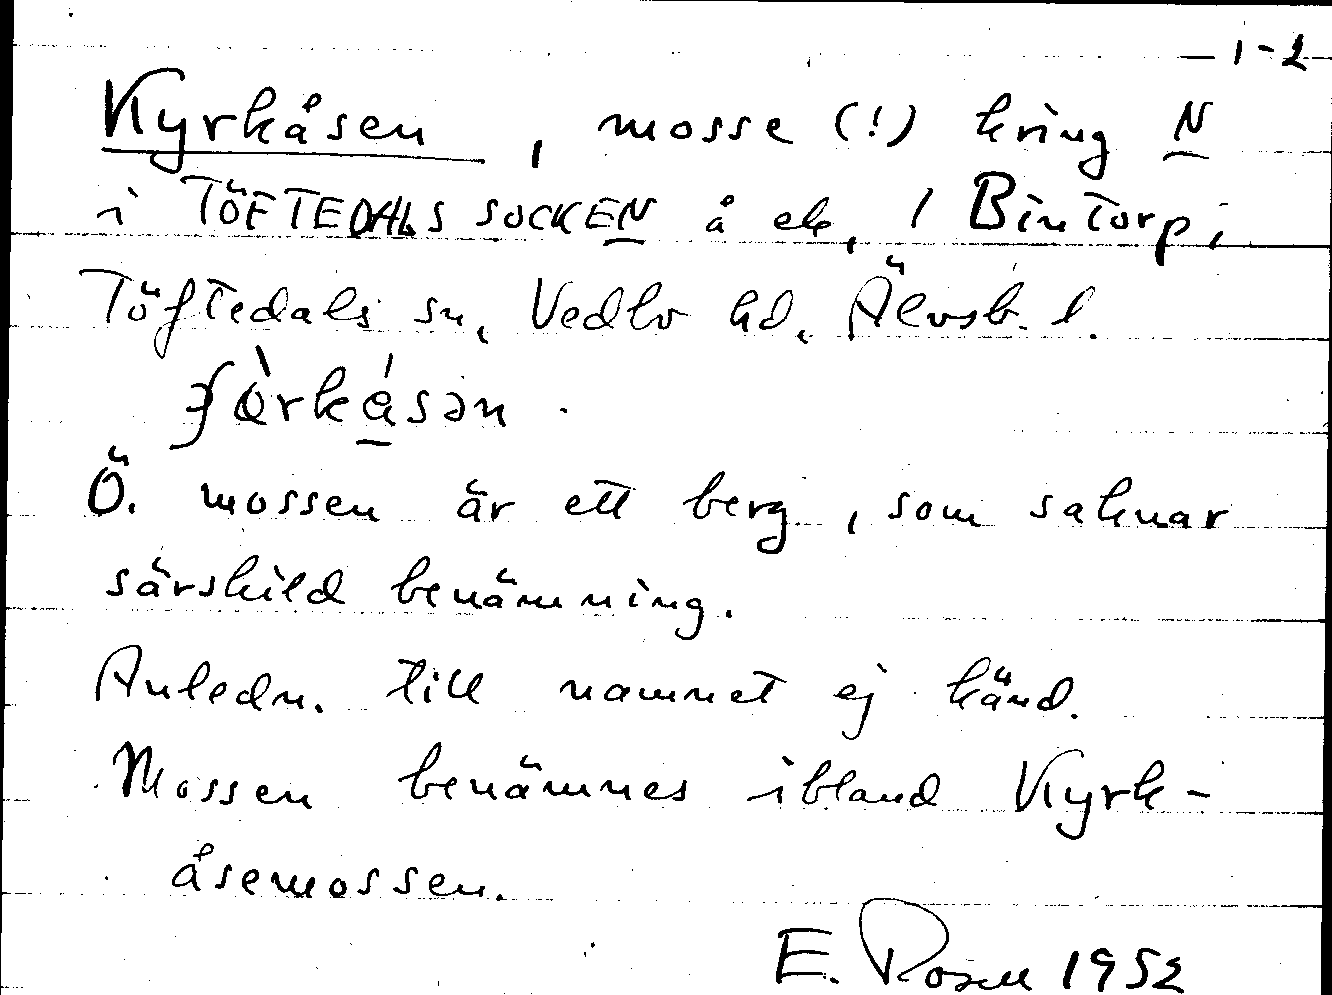 1-2
Kyrkåsen, mosse (!) kring N
i TÖFTEDALS SOCKEN å ek, 1 Bintorp,
Töftedals sn, Vedbo hd, Älvsb. l.
Ö. mossen är ett berg, som saknar
särskild benämning.
Anledn. till namnet ej känd.
Mossen benämnes ibland Kyrk-
åsemossen.
E. Rosell 1952